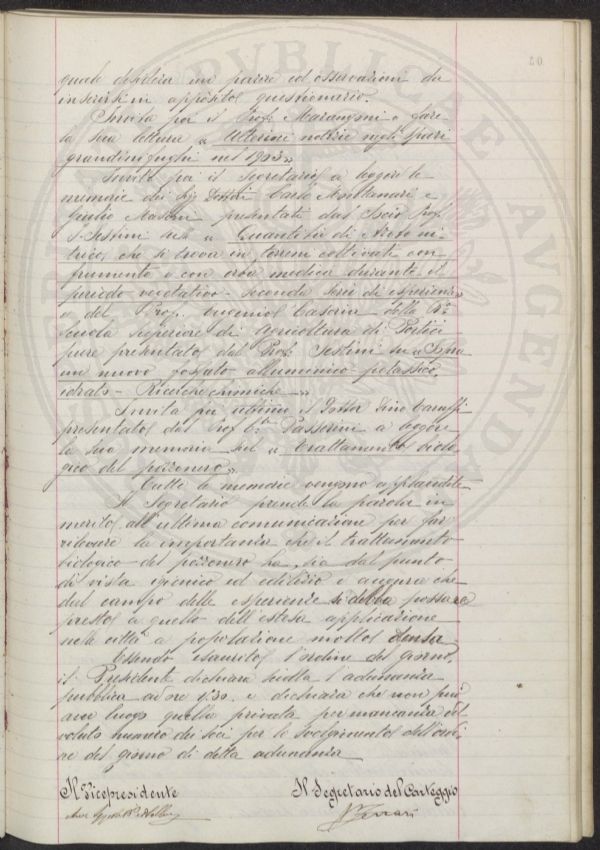 80
quale desidera un parere ed osservazioni da
inserirsi in apposito questionario.
Invita poi il Prof. Marangoni a fare
la sua lettura "Ulteriori notizie sugli spari
grandinifughi nel 1903"
Invita poi il Segretario a leggere le
memorie dei Sigg. Dottori Carlo Montanari e
Giulio Masoni presentati dal Socio Prof.
F. Sestini su "Quantità di Azoto ni-
trico, che si trova in terreni coltivati con
frumento e con erba medica durante il
periodo vegetativo - seconda serie di esperienze"
e del Prof. Eugenio Casoria della R.
Scuola Superiore di Agricoltura di Portici
pure presentato dal Prof. Sestini su "Sopra
un nuovo fosfato alluminico-potassico
idrato - Ricerche chimiche -"
Invita per ultimo il Dottor Dino Taruffi
presentato dal Prof. Passerini a leggere
la sua memoria sul "Trattamento biolo-
gico del pozzonero".
Tutte le memorie vengono applaudite.
Il Segretario prende la parola in
merito all'ultima comunicazione per far
rilevare la importanza che il trattamento
biologico del pozzonero ha, sia dal punto
di vista igienico ed edilizio e augura che
dal campo delle esperienze si debba passare
presto a quello dell'estesa applicazione
nelle città a popolazione molto densa
Essendo esaurito l'ordine del giorno,
il Presidente dichiara sciolta l'adunanza
pubblica ad ore e dichiara che non può
aver luogo quella privata per mancanza del
voluto numero dei soci per lo svolgimento dell'ordi-
ne del giorno di detta adunanza
Il Vicepresidente Il Segretario del Carteggio
P. Ferrari